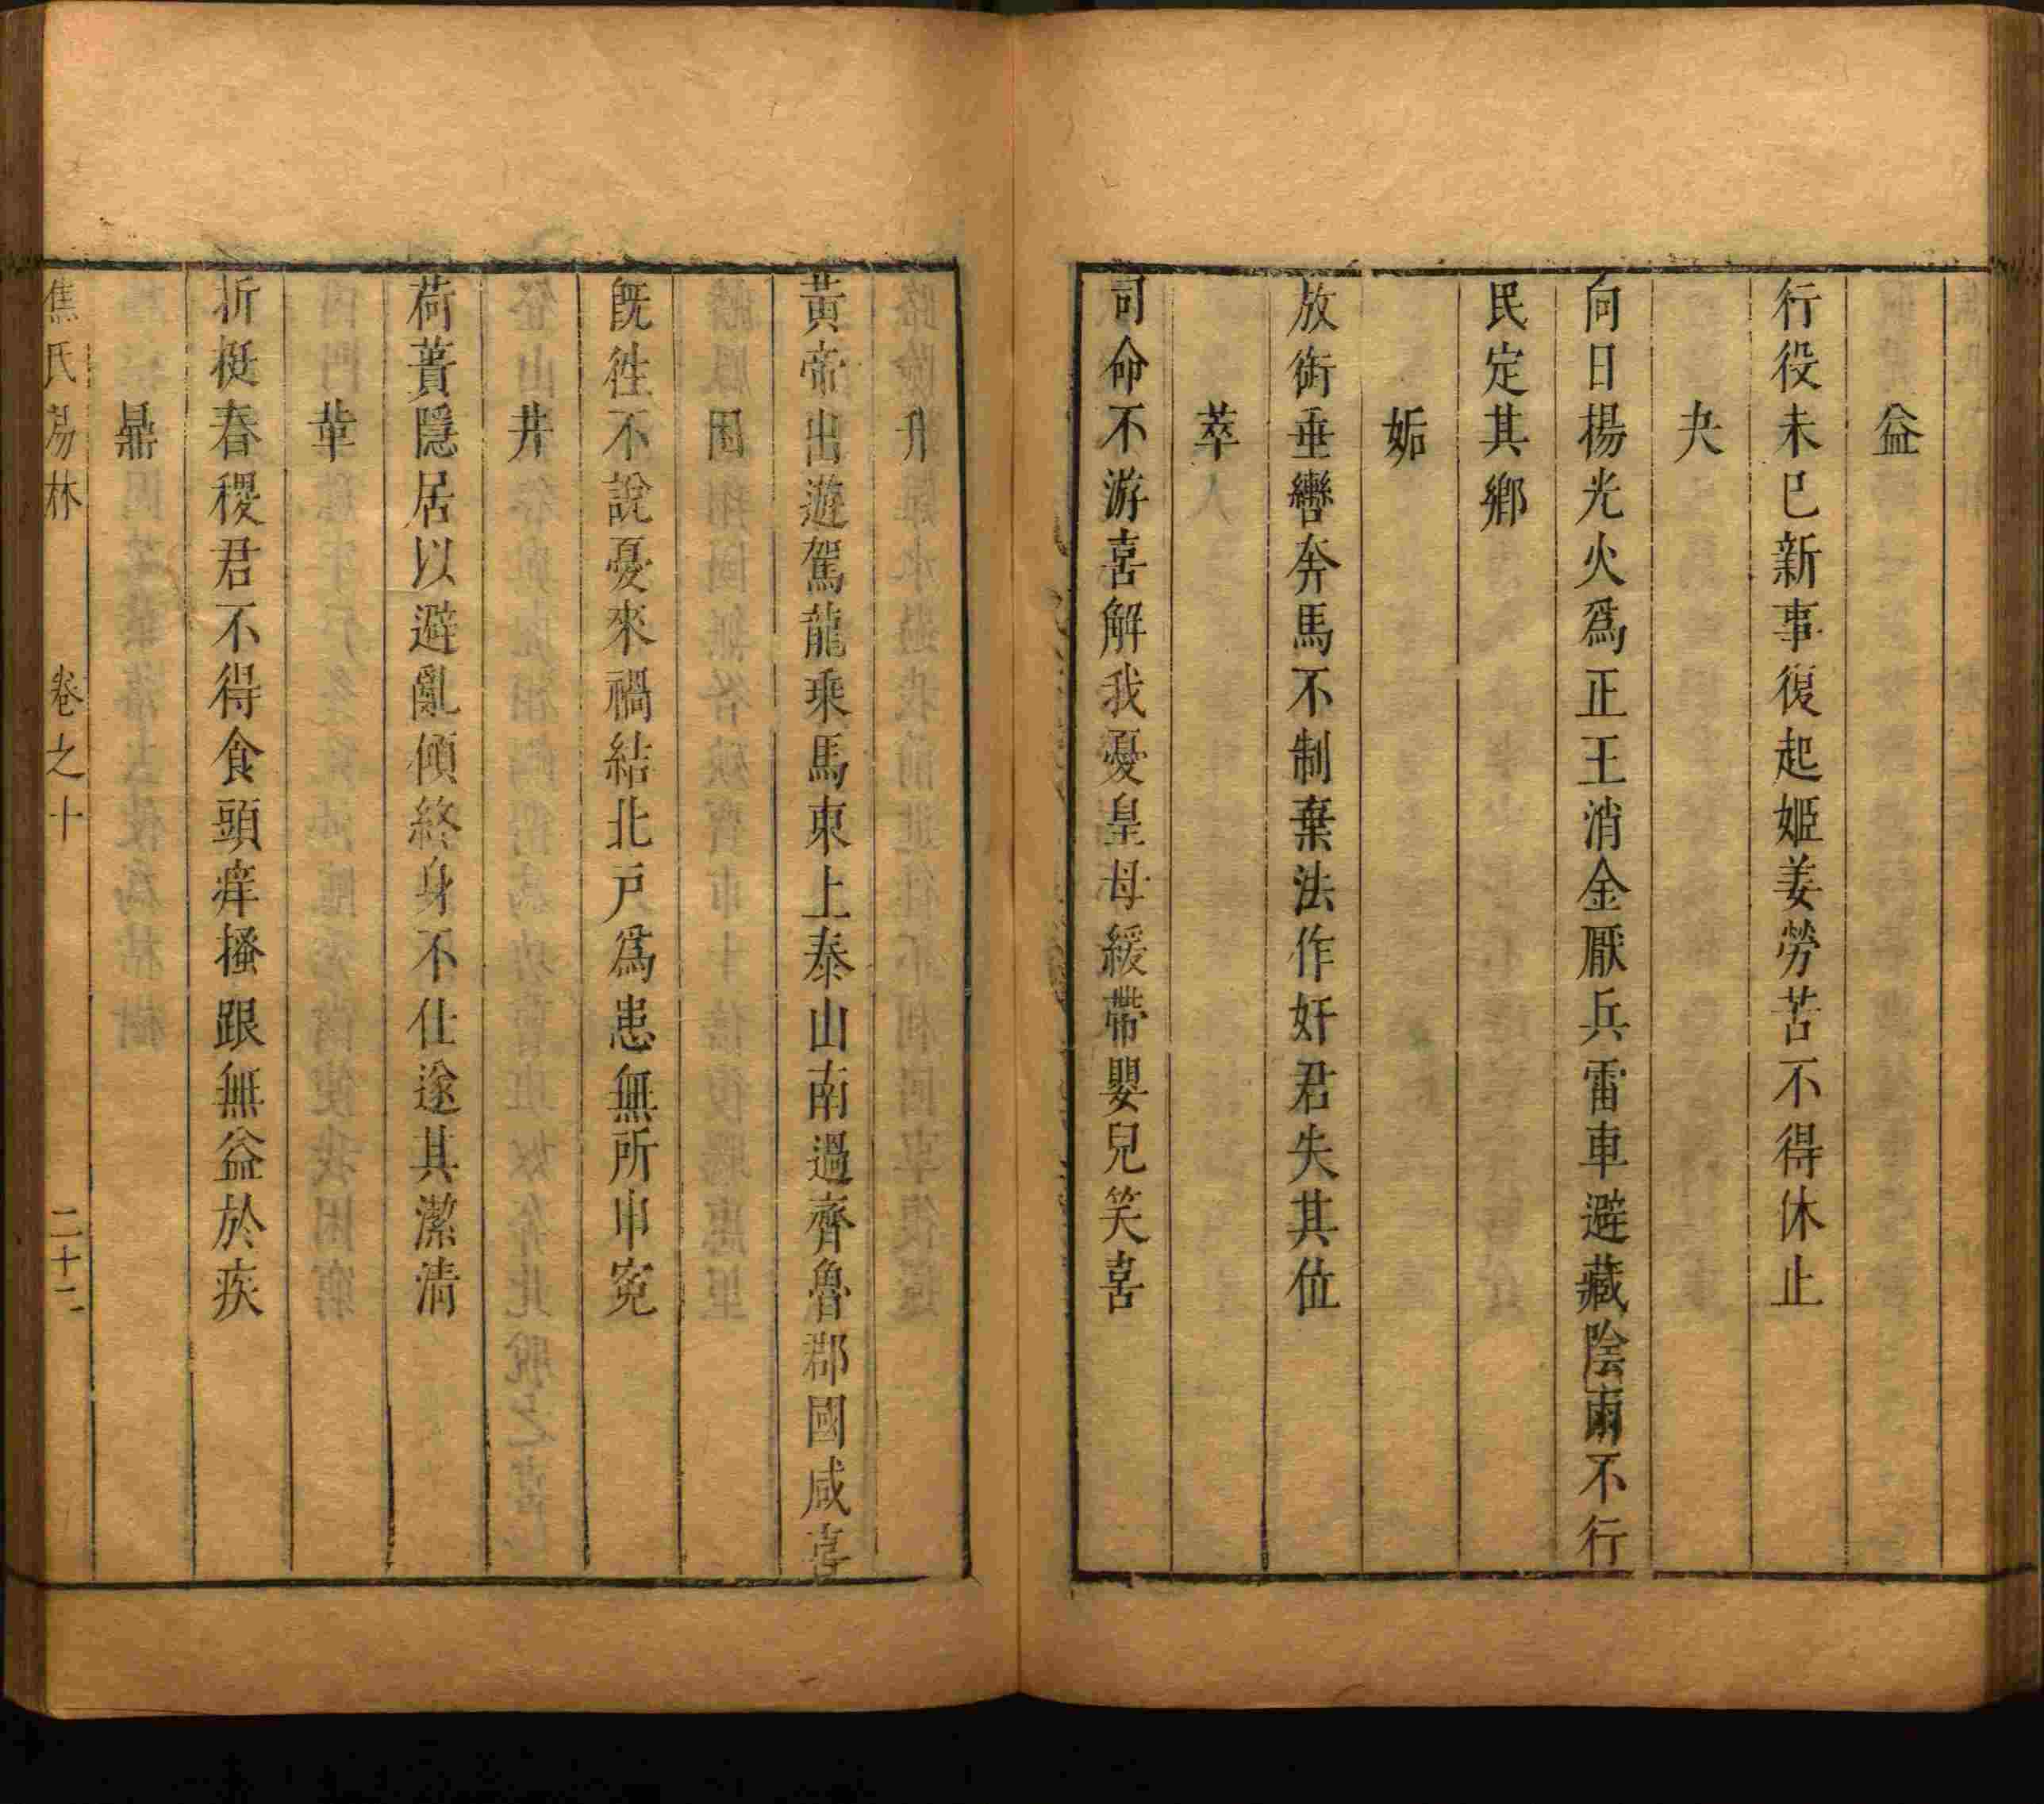 益
行役未已新事復起姬姜勞苦不得休止
夬
向日揚光火爲正王消金厭兵雷車避藏陰雨不行
民定其鄉
姤
放銜垂轡奔馬不制棄法作奸君失其位
萃
司命不游喜解我憂皇母緩帶嬰兒笑喜
升
黃帝出遊駕龍乘馬東上泰山南過齊魯郡國咸喜
困
旣徃不說憂來禍結北戸爲患無所申寃
井
荷蕢隱居以避亂傾終身不仕遂其潔清
革
折梃舂稷君不得食頭痒搔跟無益於疾
鼎
焦氏易林 卷之十 二十二